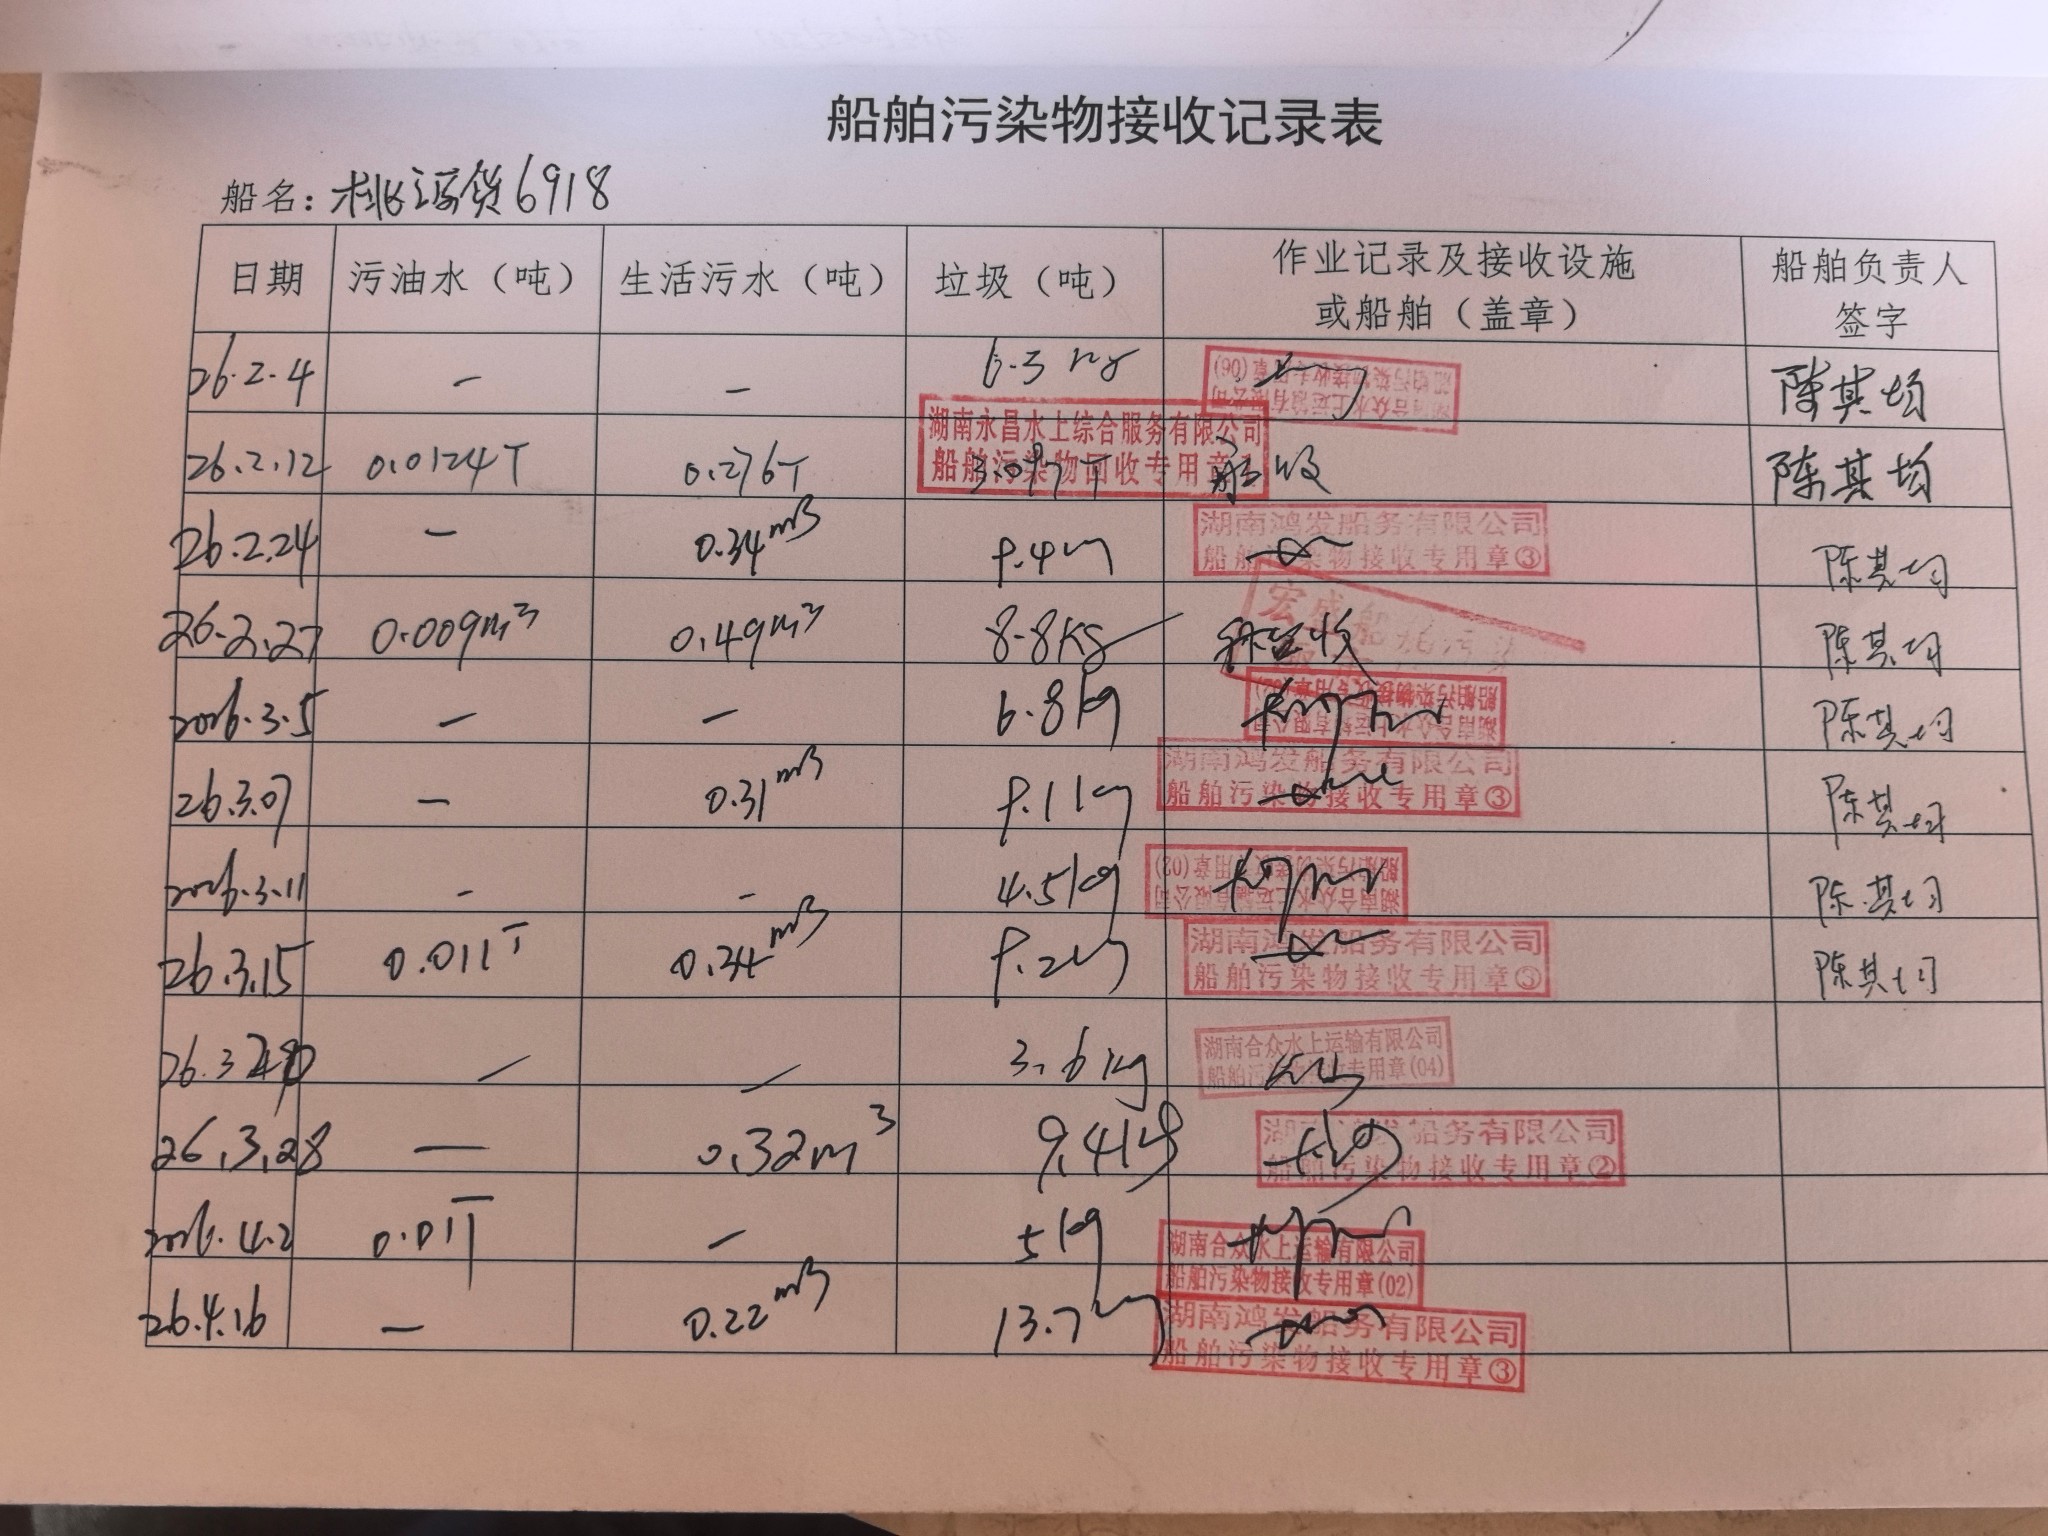 船舶污染物接收记录表
船名：桃源货6918
日期 污油水（吨） 生活污水（吨） 垃圾（吨） 作业记录及接收设施或船舶（盖章） 船舶负责人签字
26.2.4 — — 6.3kg 陈其均
湖南合众水上运输有限公司
船舶污染物接收专用章(06)
26.2.12 0.0124T 0.276T 陈其均
湖南永昌水上综合服务有限公司
船舶污染物回收专用章
26.2.24 — 0.34m3 9.4kg 陈其均
湖南鸿发船务有限公司
船舶污染物接收专用章③
26.2.27 0.009m3 0.49m3 8.8kg 陈其均
宏盛船舶污染
2026.3.5 — — 6.8kg 陈其均
湖南合众水上运输有限公司
船舶污染物接收专用章(02)
26.3.07 — 0.31m3 9.1kg 陈其均
湖南鸿发船务有限公司
船舶污染物接收专用章③
2026.3.11 - - 4.5kg 陈其均
湖南合众水上运输有限公司
船舶污染物接收专用章(02)
26.3.15 0.011T 0.34m3 9.2kg 陈其均
湖南鸿发船务有限公司
船舶污染物接收专用章③
26.3 — — 3.6kg
湖南合众水上运输有限公司
船舶污染物接收专用章(04)
26.3.28 — 0.32m3 9.4kg
湖南鸿发船务有限公司
船舶污染物接收专用章②
2026.4.2 0.01T — 5kg
湖南合众水上运输有限公司
船舶污染物接收专用章(02)
26.4.16 — 0.22m3 13.7kg
湖南鸿发船务有限公司
船舶污染物接收专用章③